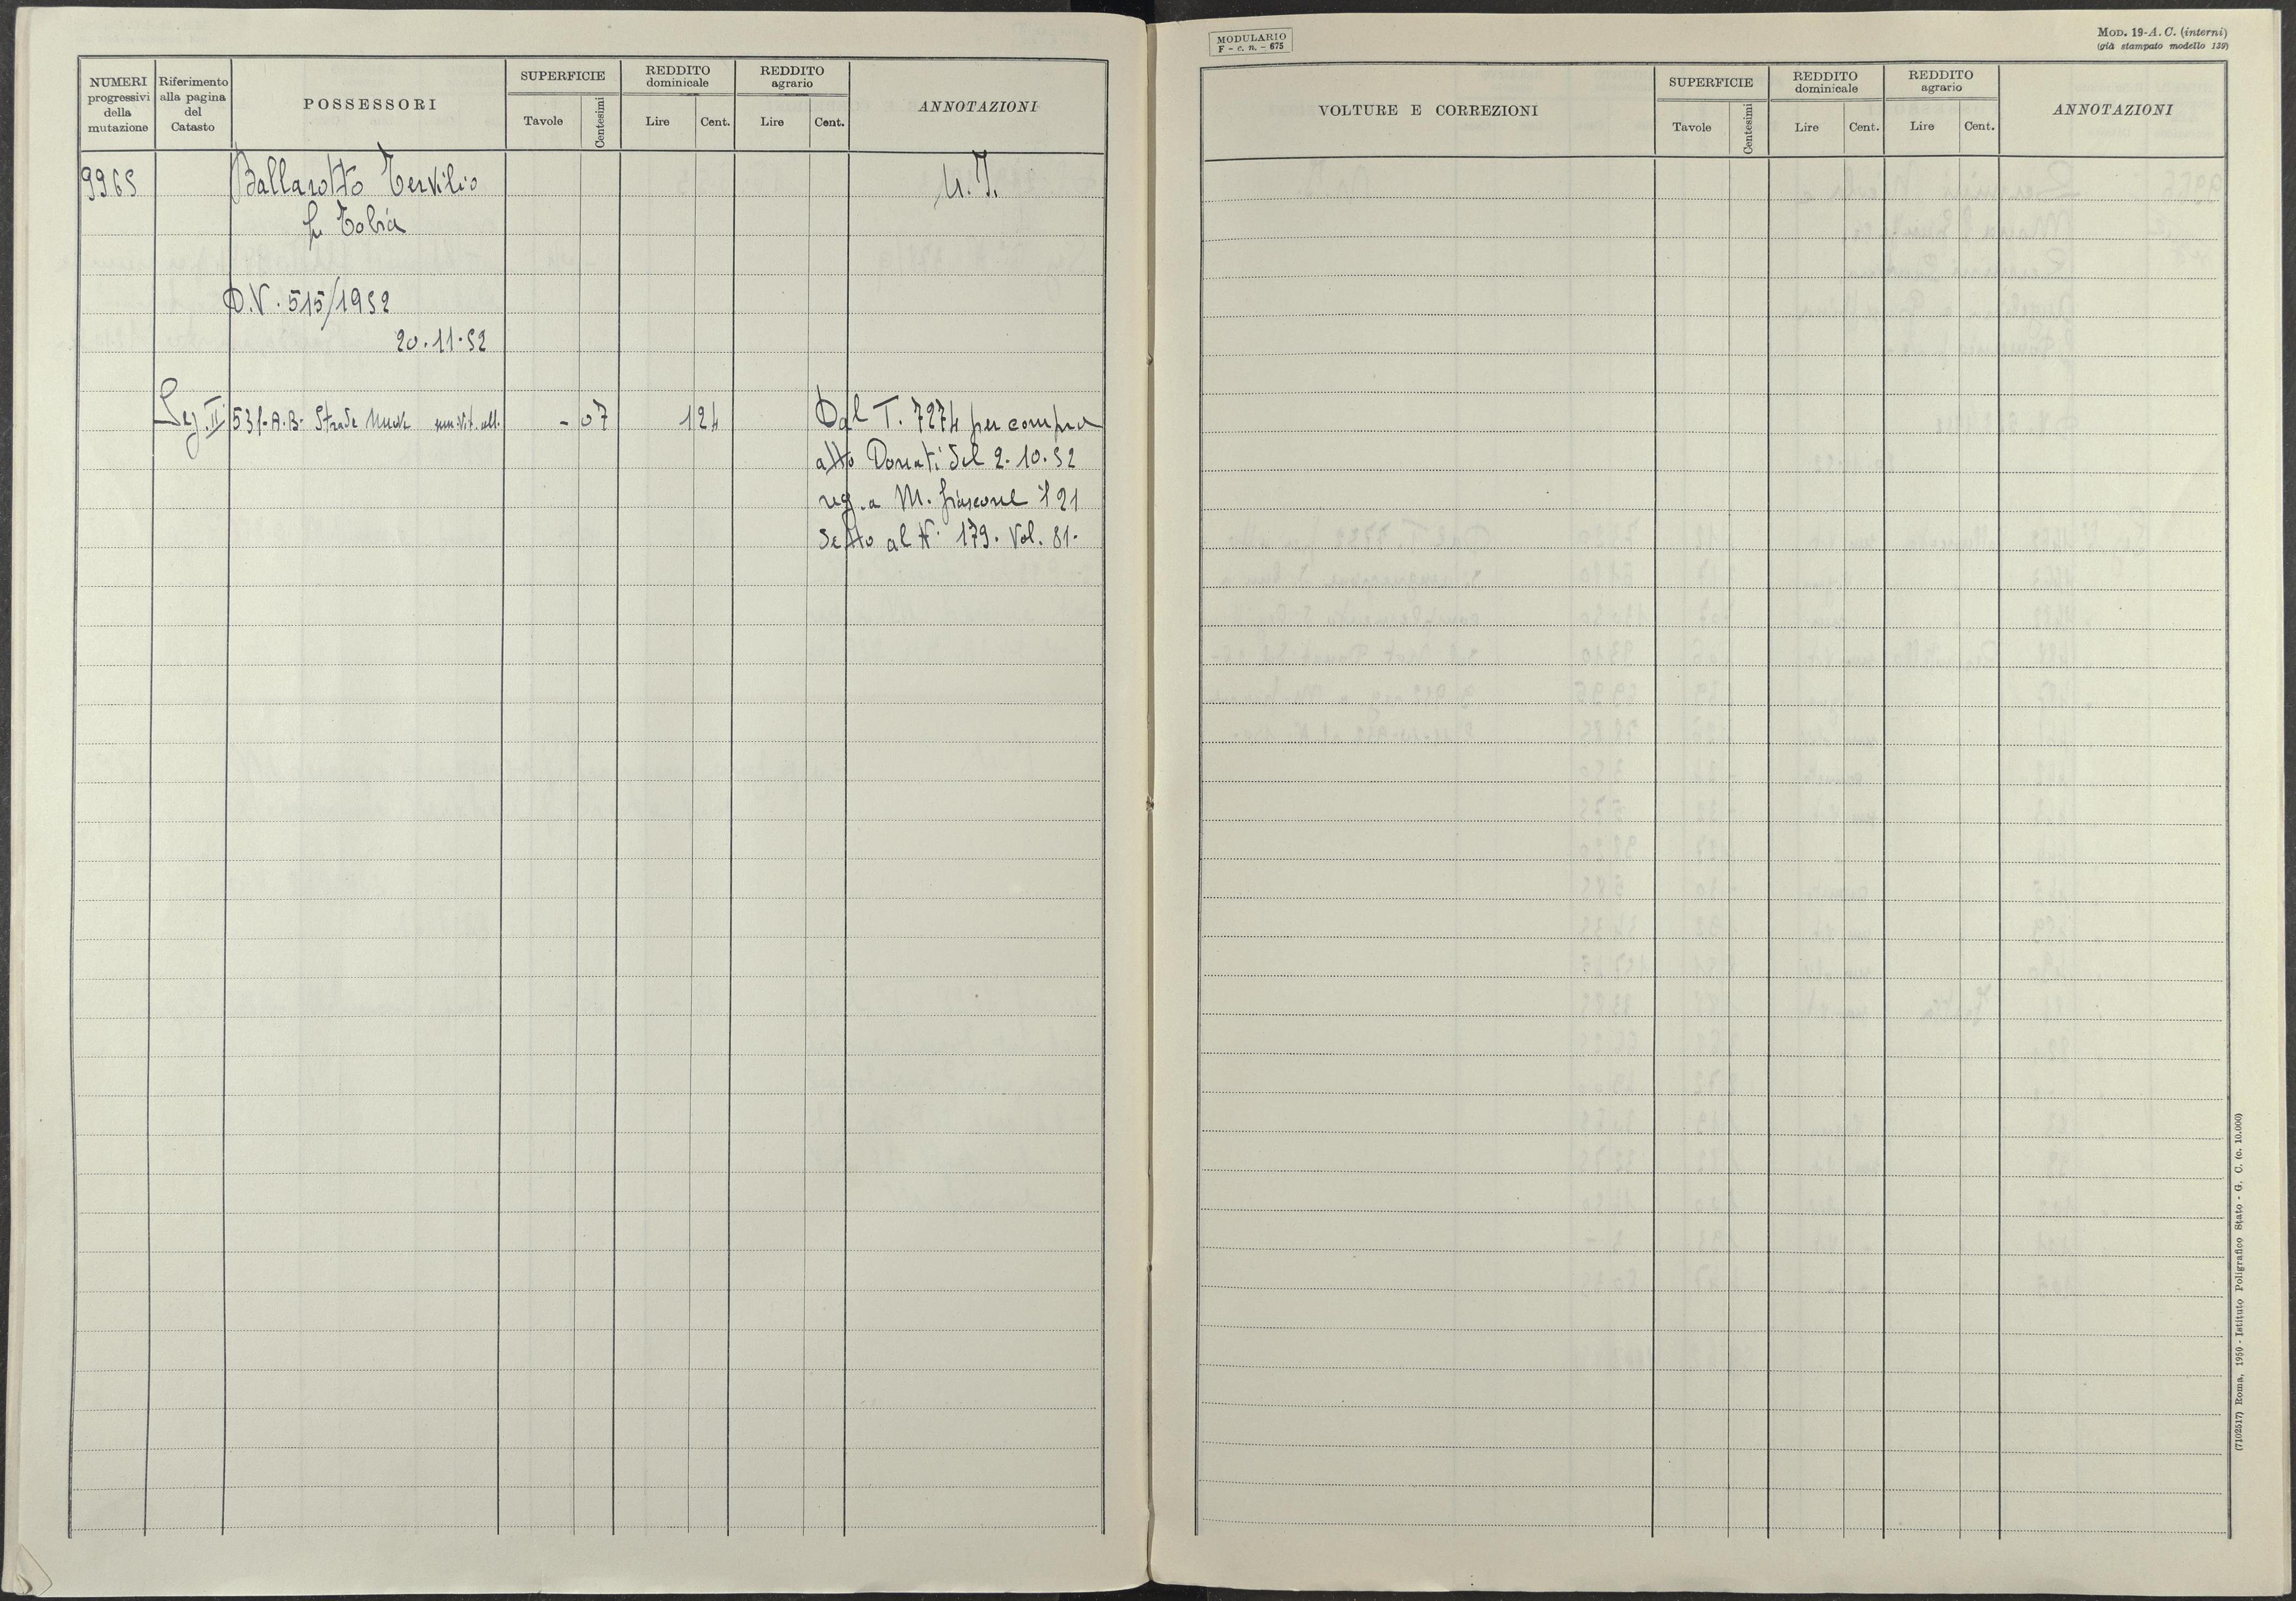 NUMERI progressivi della mutazione
Riferimento alla pagina del Catasto
POSSESSORI
SUPERFICIE
Tavole
Centesimi
REDDITO dominicale
Lire
Cent.
REDDITO agrario
Lire
Cent.
ANNOTAZIONI
9965 Ballarotto Tervilio U.I.
fu Tobia
D.V. 515/1952
20.11.52
Seg. II 531-A.B. Strada - 07 1 24 Dal T. 7274 per compra
atto Donati del 2.10.52
reg. a M. il 21
detto al N. 179. Vol. 81.
MODULARIO
F - c. n. - 675
MOD. 19-A. C. (interni)
(già stampato modello 139)
VOLTURE E CORREZIONI
SUPERFICIE
Tavole
Centesimi
REDDITO dominicale
Lire
Cent.
REDDITO agrario
Lire
Cent.
ANNOTAZIONI
(7102517) Roma, 1950 - Istituto Poligrafico Stato - G. C. (c. 10.000)